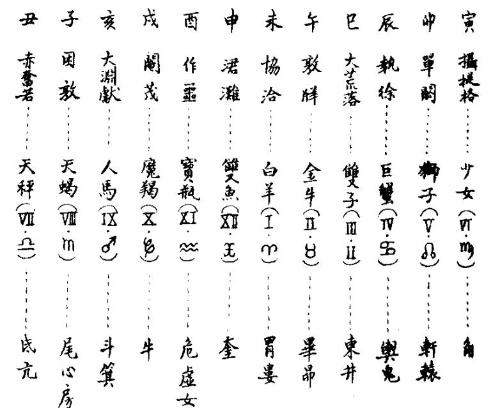 寅 攝提格……少女(Ⅵ·♍)……角
卯 單閼……獅子(Ⅴ·♌)……軒轅
辰 執徐……巨蟹(Ⅳ·♋)……輿鬼
巳 大荒落……雙子(Ⅲ·♊)……東井
午 敦牂……金牛(Ⅱ·♉)……畢昴
未 協洽……白羊(Ⅰ·♈)……胃婁
申 涒灘……雙魚(Ⅻ·♓)……奎
酉 作噩……寶瓶(Ⅺ·♒)……危虛女
戌 閹茂……魔羯(Ⅹ·♑)……牛
亥 大淵獻……人馬(Ⅸ·♐)……斗箕
子 困敦……天蝎(Ⅷ·♏)……尾心房
丑 赤奮若……天秤(Ⅶ·♎)……氐亢